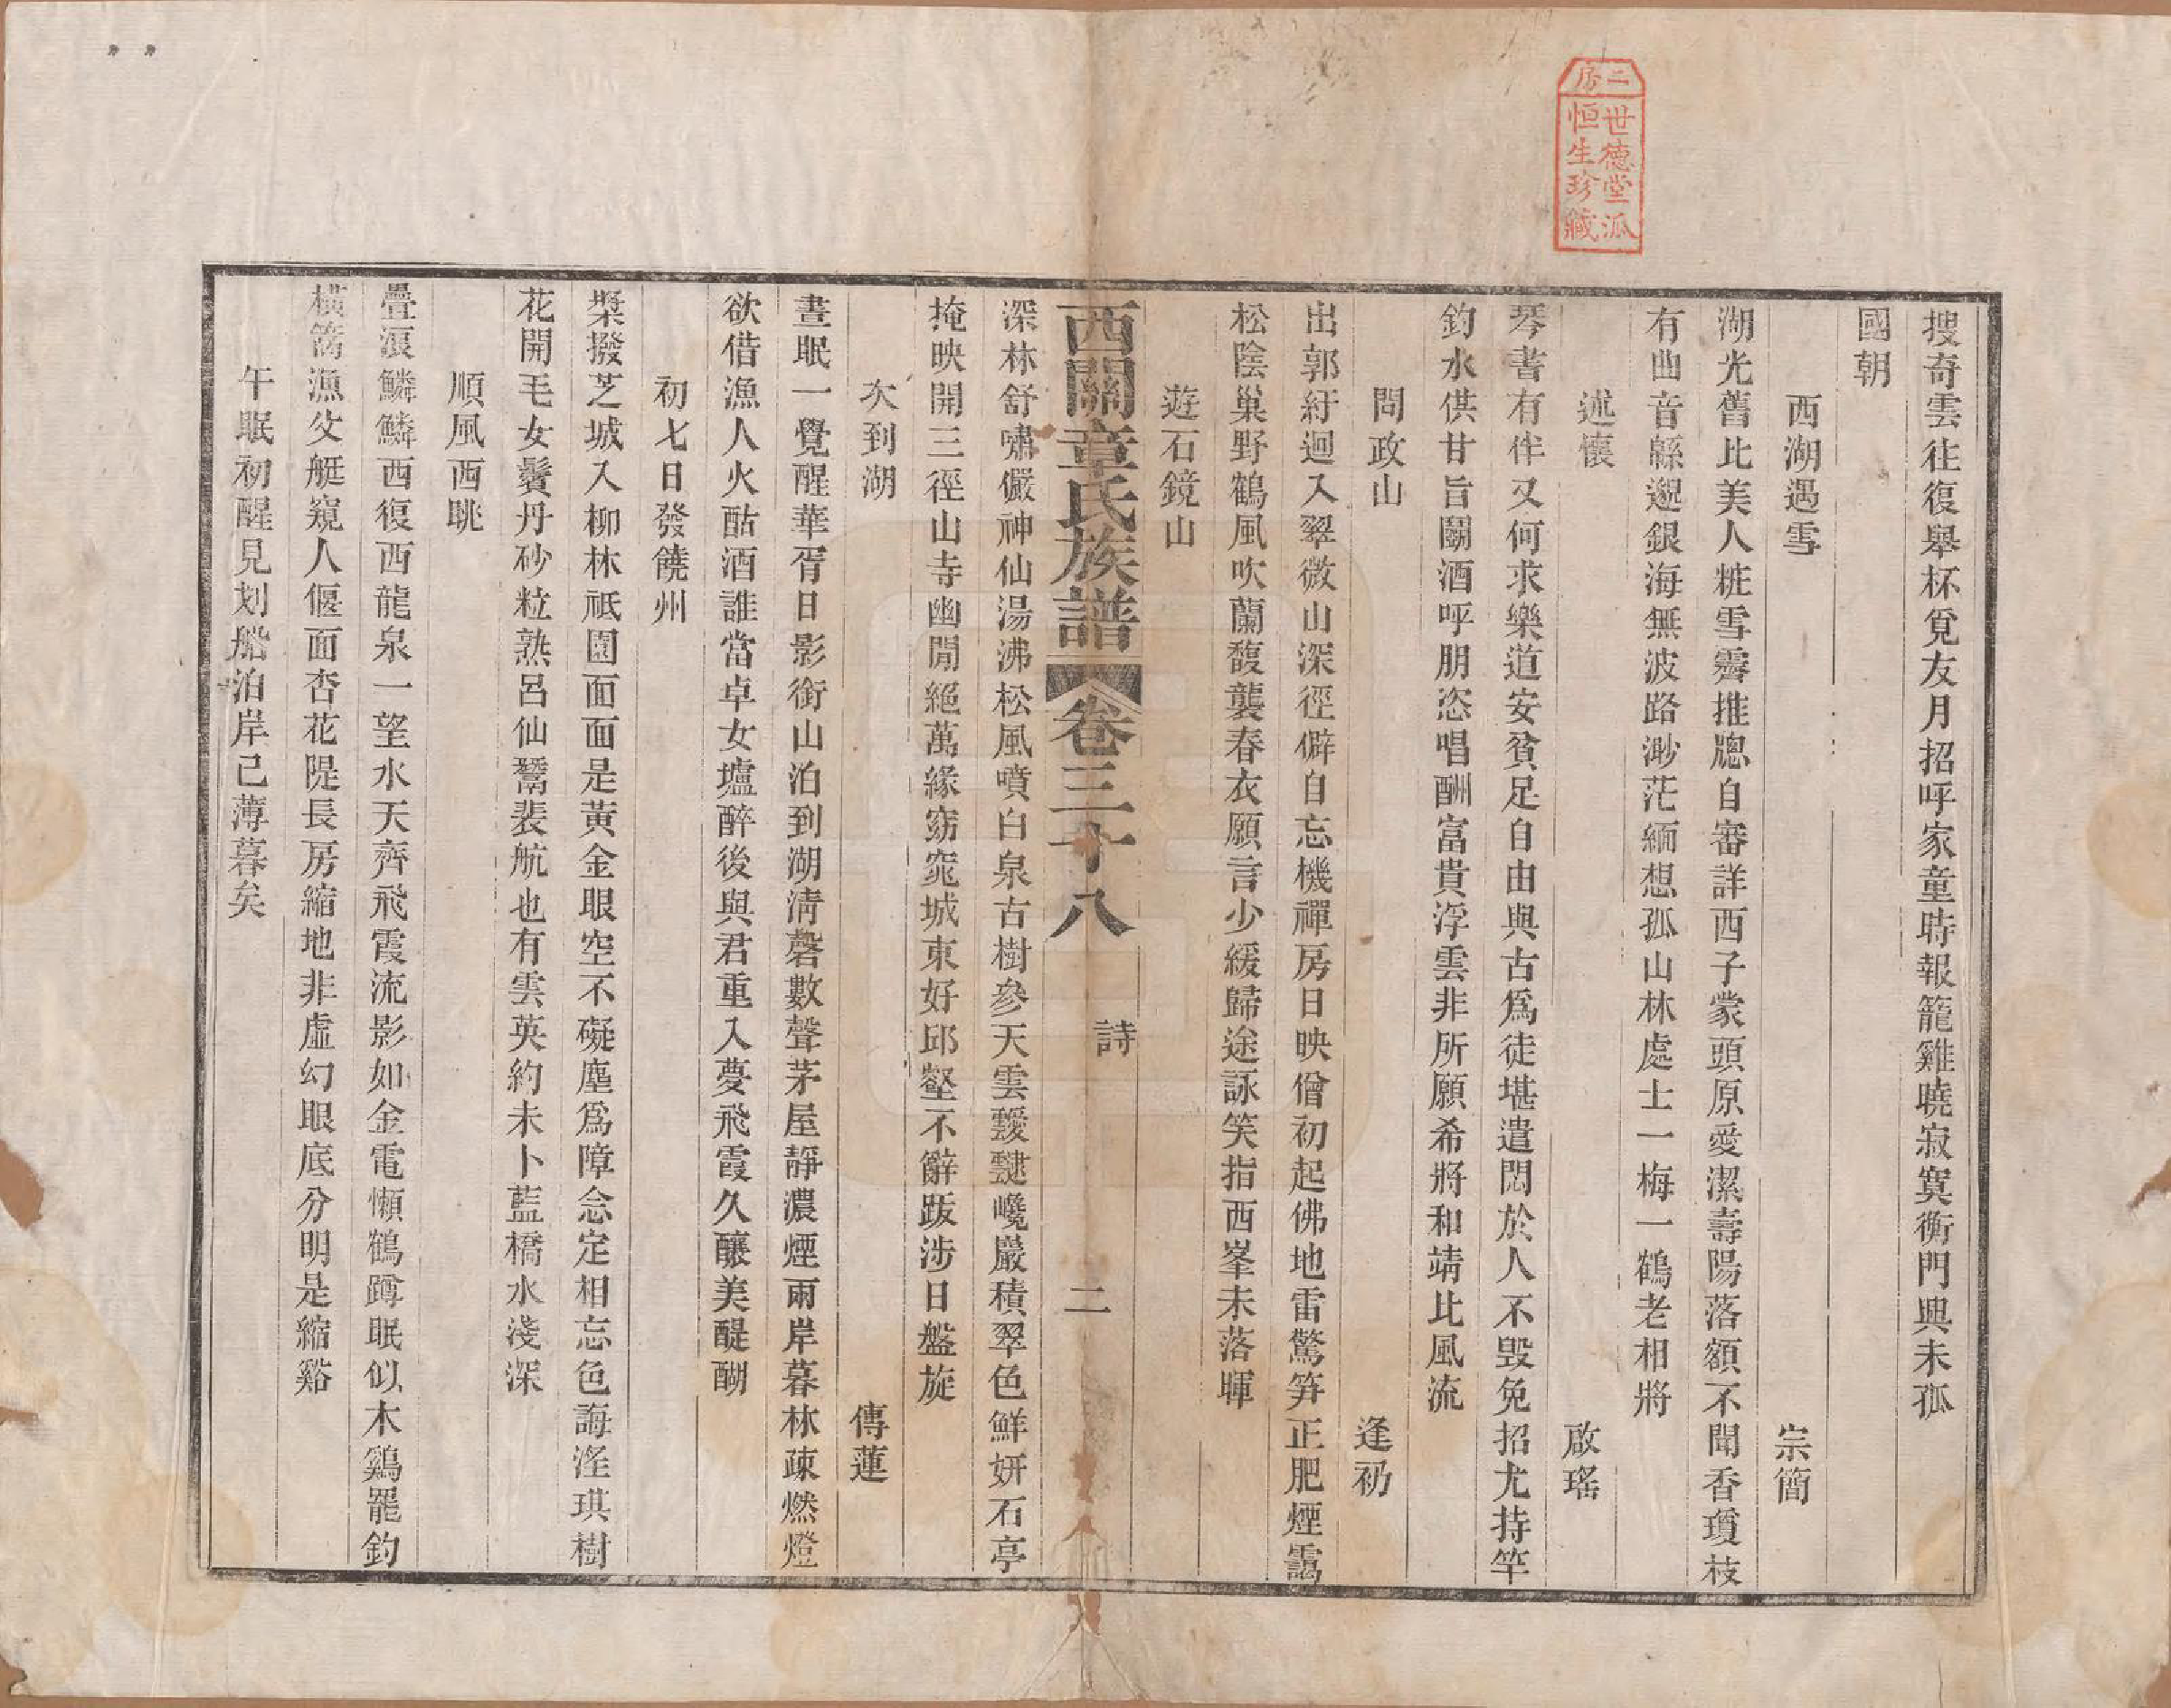 搜奇雲往復舉杯覓友月招呼家童時報籠雞曉寂寞衡門興未孤
國朝
西湖遇雪　宗簡
湖光舊比美人粧雪霽推牕自審詳西子蒙頭原愛潔壽陽落額不聞香瓊枝
有曲音緜邈銀海無波路渺茫緬想孤山林處士一梅一鶴老相將
述懷　啟瑤
琴書有伴又何求樂道安貧足自由與古爲徒堪遣悶於人不毀免招尤持竿
釣水供甘旨鬭酒呼朋恣唱酬富貴浮雲非所願希將和靖比風流
問政山　逢礽
出郭紆迴入翠微山深徑僻自忘機禪房日映僧初起佛地雷驚笋正肥煙靄
松陰巢野鶴風吹蘭馥襲春衣願言少緩歸途詠笑指西峯未落暉
遊石鏡山
西關章氏族譜　卷三十八　詩　二
深林舒嘯儼神仙湯沸松風噴白泉古樹參天雲靉靆巉巖積翠色鮮妍石亭
掩映開三徑山寺幽閒絕萬緣窈窕城東好邱壑不辭跋涉日盤旋
次到湖　傳蓮
晝眠一覺醒華胥日影銜山泊到湖淸磬數聲茅屋靜濃煙兩岸暮林疎燃燈
欲借漁人火酤酒誰當卓女壚醉後與君重入夢飛霞久釀美醍醐
初七日發饒州
槳撥芝城入柳林祗園面面是黃金眼空不礙塵爲障念定相忘色誨淫琪樹
花開毛女鬢丹砂粒熟呂仙鬵裴航也有雲英約未卜藍橋水淺深
順風西眺
疊浪鱗鱗西復西龍泉一望水天齊飛霞流影如金電懶鶴蹲眠似木鷄罷釣
橫篙漁父艇窺人偃面杏花隄長房縮地非虛幻眼底分明是縮谿
午眠初醒見划船泊岸已薄暮矣
二房
世德堂派
恒生珍藏